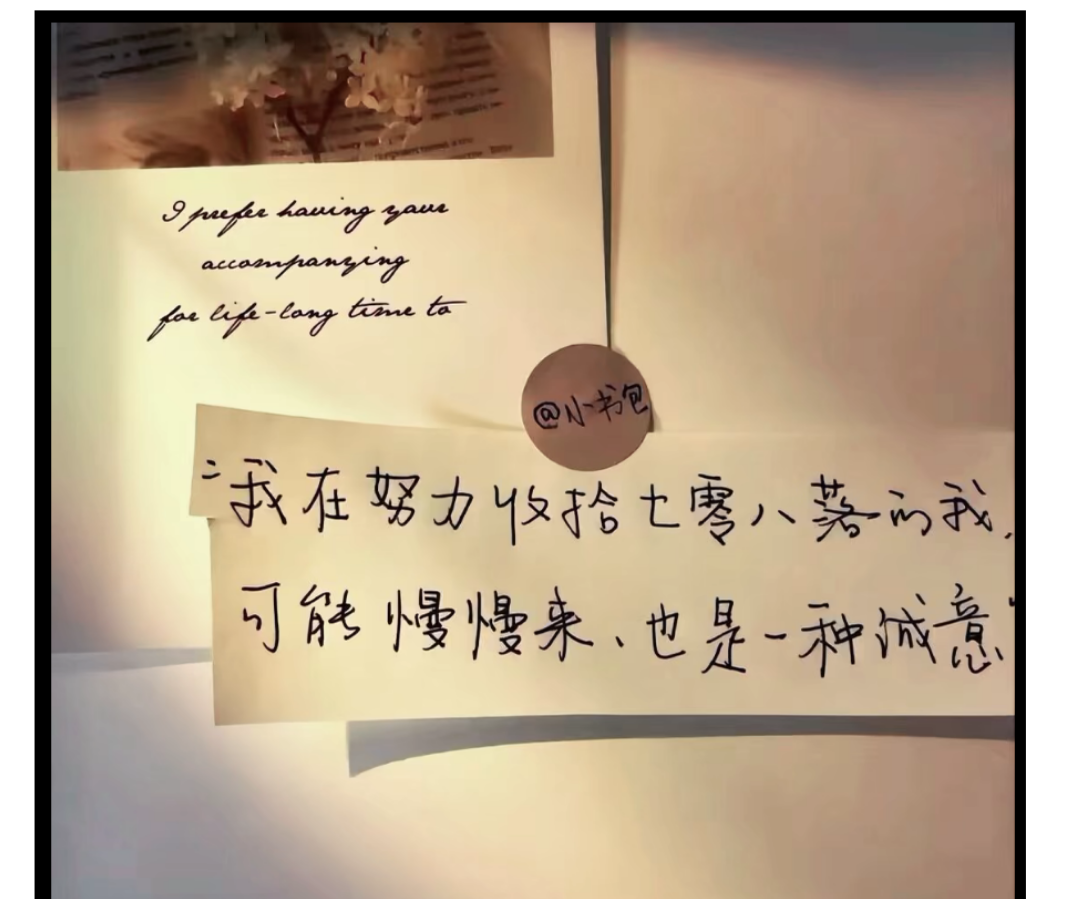 I prefer having your
accompanying
for life-long time to
@小书包
“我在努力收拾七零八落的我,
可能慢慢来、也是一种诚意”